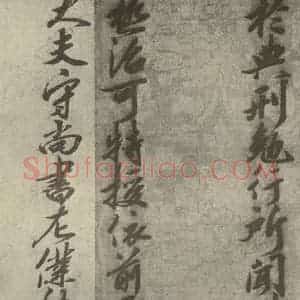 於典刑勉行所聞
極治可特授依前
大夫守尚書左僕
Shufaziliao.com